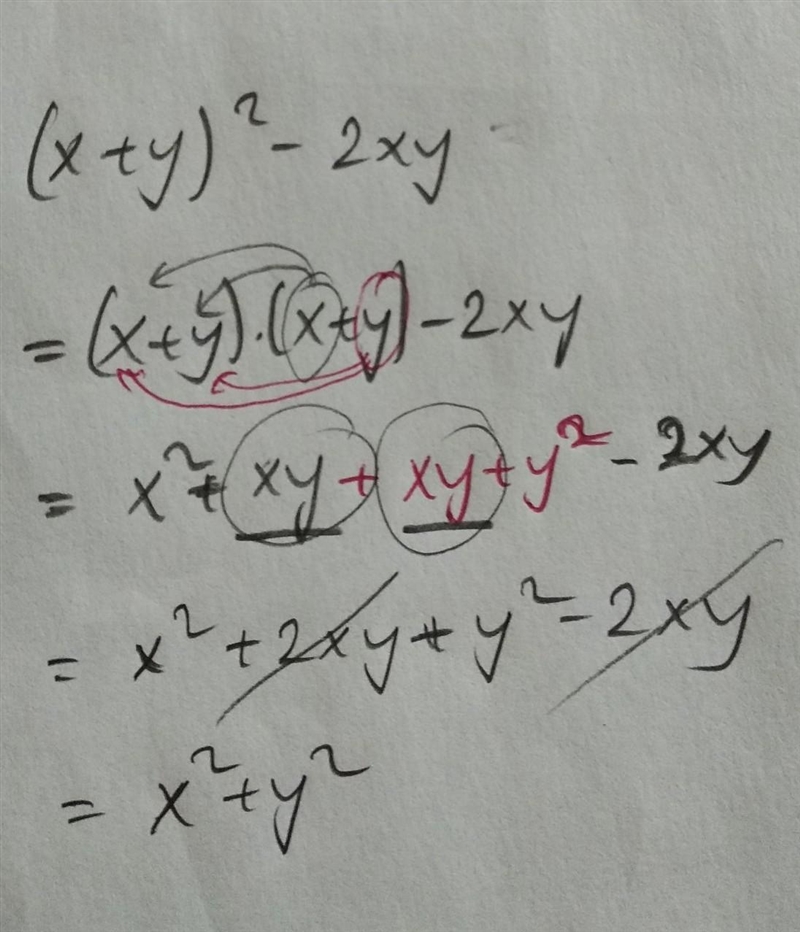 (x+y)² - 2xy
= (x+y).(x+y) - 2xy
= x² + xy + xy + y² - 2xy
= x² + 2xy + y² - 2xy
= x² + y²